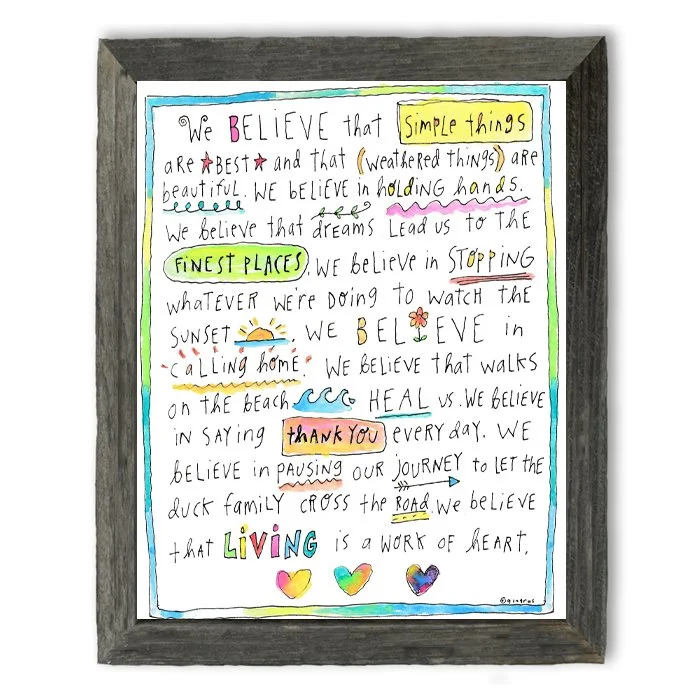 We BELIEVE that simple things
are BEST and that (weathered things) are
beautiful. WE bELiEVE in hoLDiNG hands.
We believe that dreams LEAD us to the
FiNEST PLACES. WE bELiEVE in STOPPiNG
whatever we're doing to watch the
SUNSET. WE BELIEVE in
CALLiNG home. WE bELiEVE that walks
on the beach HEAL us. WE BELiEVE
iN SAYiNG thANK YOU every day. WE
bELiEVE in PAUSiNG OUR JOURNEY to LET the
duck family CROSS the ROAD. We bELiEVE
that LiViNG is a WORK OF HEART.